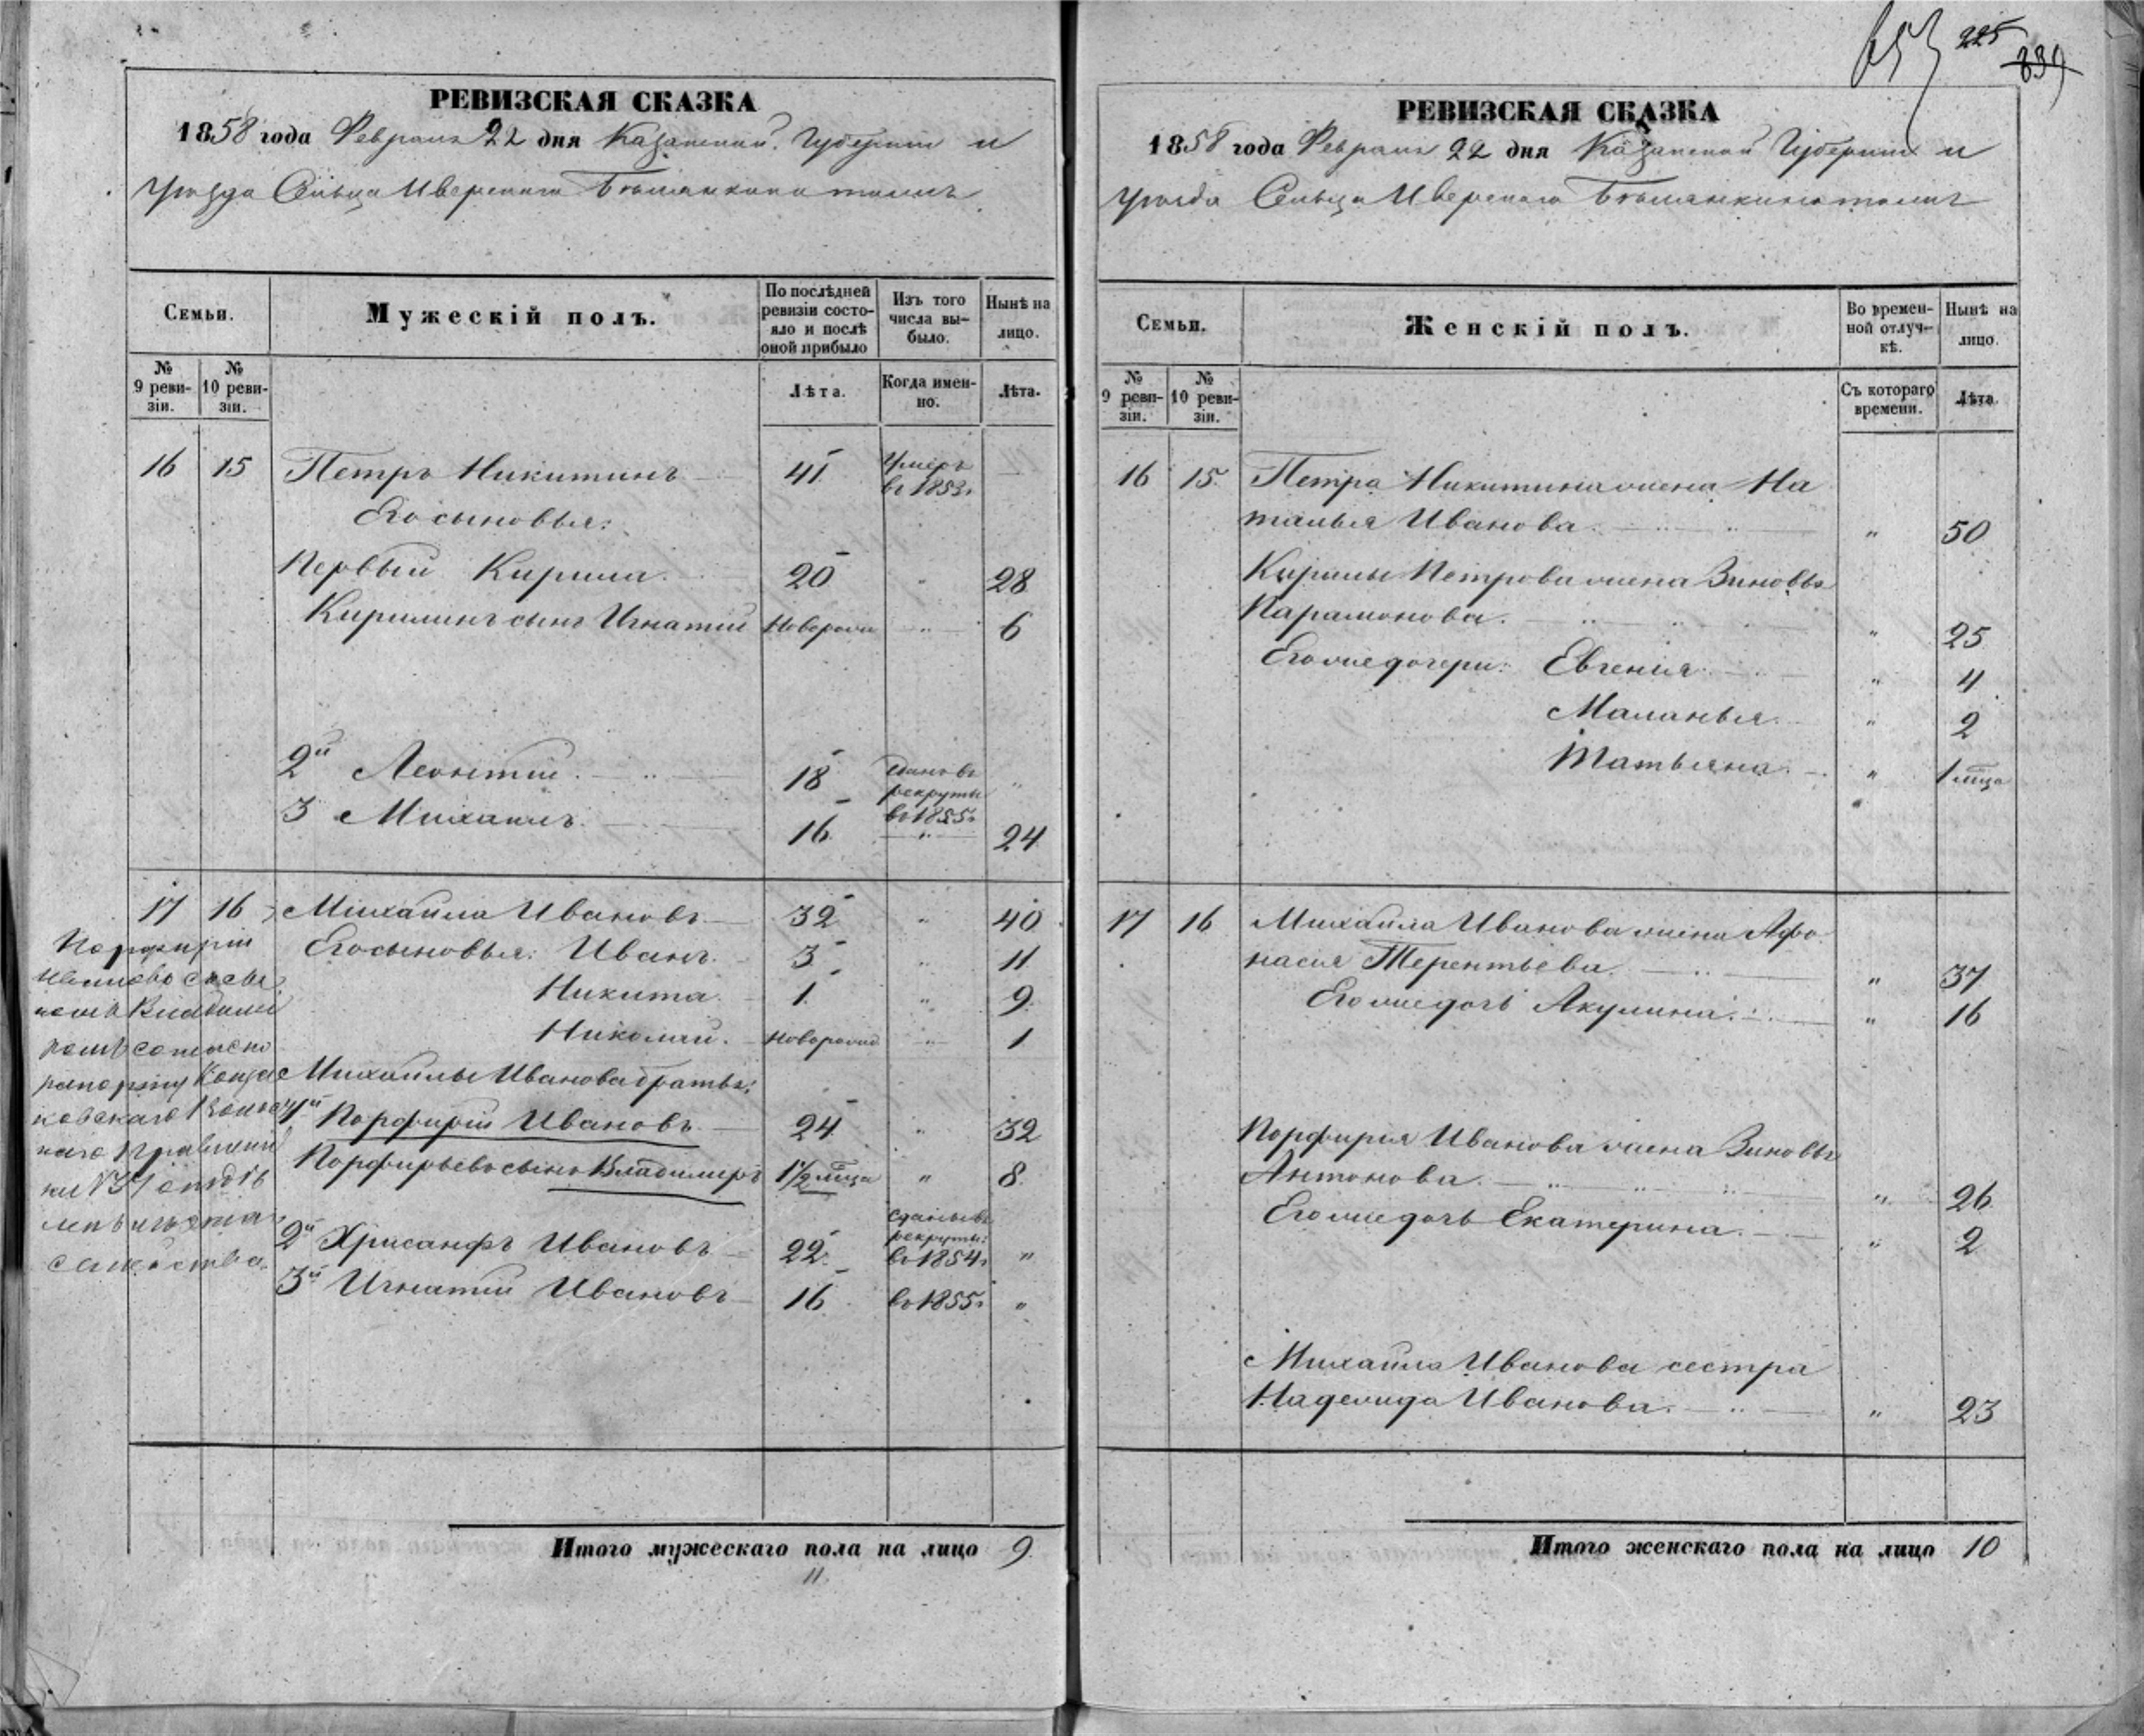 653 225 839
РЕВИЗСКАЯ СКАЗКА
1858 года Февраля 22 дня Казанской Губерніи и
уѣзда Сельца Иверскаго тожъ
Семьи.
Мужескій полъ.
По послѣдней ревизіи состояло и послѣ оной прибыло
Изъ того числа выбыло.
Нынѣ на лицо.
№ 9 ревизіи.
№ 10 ревизіи.
Лѣта.
Когда именно.
Лѣта.
16 15 Петръ Никитинъ 41 Умеръ въ 1853г —
Его сыновья:
Первый Кирила. 20 „ 28
Кирилинъ сынъ Игнатій Новорожд — „ — 6
2й Леонтій. 18 Сданъ въ рекруты въ 1855г „
3 Михаилъ. 16 „ 24
17 16 Михайла Ивановъ 32 „ 40
Его сыновья: Иванъ. 3 „ 11
Никита. 1 „ 9
Николай. Новорожд „ 1
Михайлы Иванова братья:
1й Порфирій Ивановъ 24 „ 32
Порфирьевъ сынъ Владимиръ 1½ мѣца „ 8
2й Хрисанфъ Ивановъ 22 сданы въ рекруты: въ 1854г „
3й Игнатій Ивановъ 16 въ 1855г „
Порфирій
Ивановъ съ сы
номъ Влади
согласно
рапорту
отдѣ
изъ
семейства.
Итого мужескаго пола на лицо 9
11
РЕВИЗСКАЯ СКАЗКА
1858 года Февраля 22 дня Казанской Губерніи и
уѣзда Сельца Иверскаго тожъ
Семьи.
Женскій полъ.
Во временной отлучкѣ.
Нынѣ на лицо.
№ 9 ревизіи.
№ 10 ревизіи.
Съ котораго времени.
Лѣта.
16 15 Петра Никитина жена На
талья Иванова. „ 50
Кирилы Петрова жена Зиновья
Парамонова. „ 25
Его же дочери: Евгенія „ 4
Маланья. „ 2
Татьяна. „ 1 мѣца
17 16 Михайла Иванова жена Афо
насья Терентьева. „ 37
Его же дочь Акулина. „ 16
Порфирія Иванова жена Зиновья
Антонова. „ 26
Его же дочь Екатерина. „ 2
Михайла Иванова сестра
Надежда Иванова. „ 23
Итого женскаго пола на лицо 10